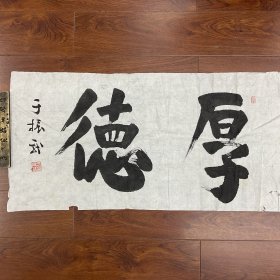 厚德
于振武